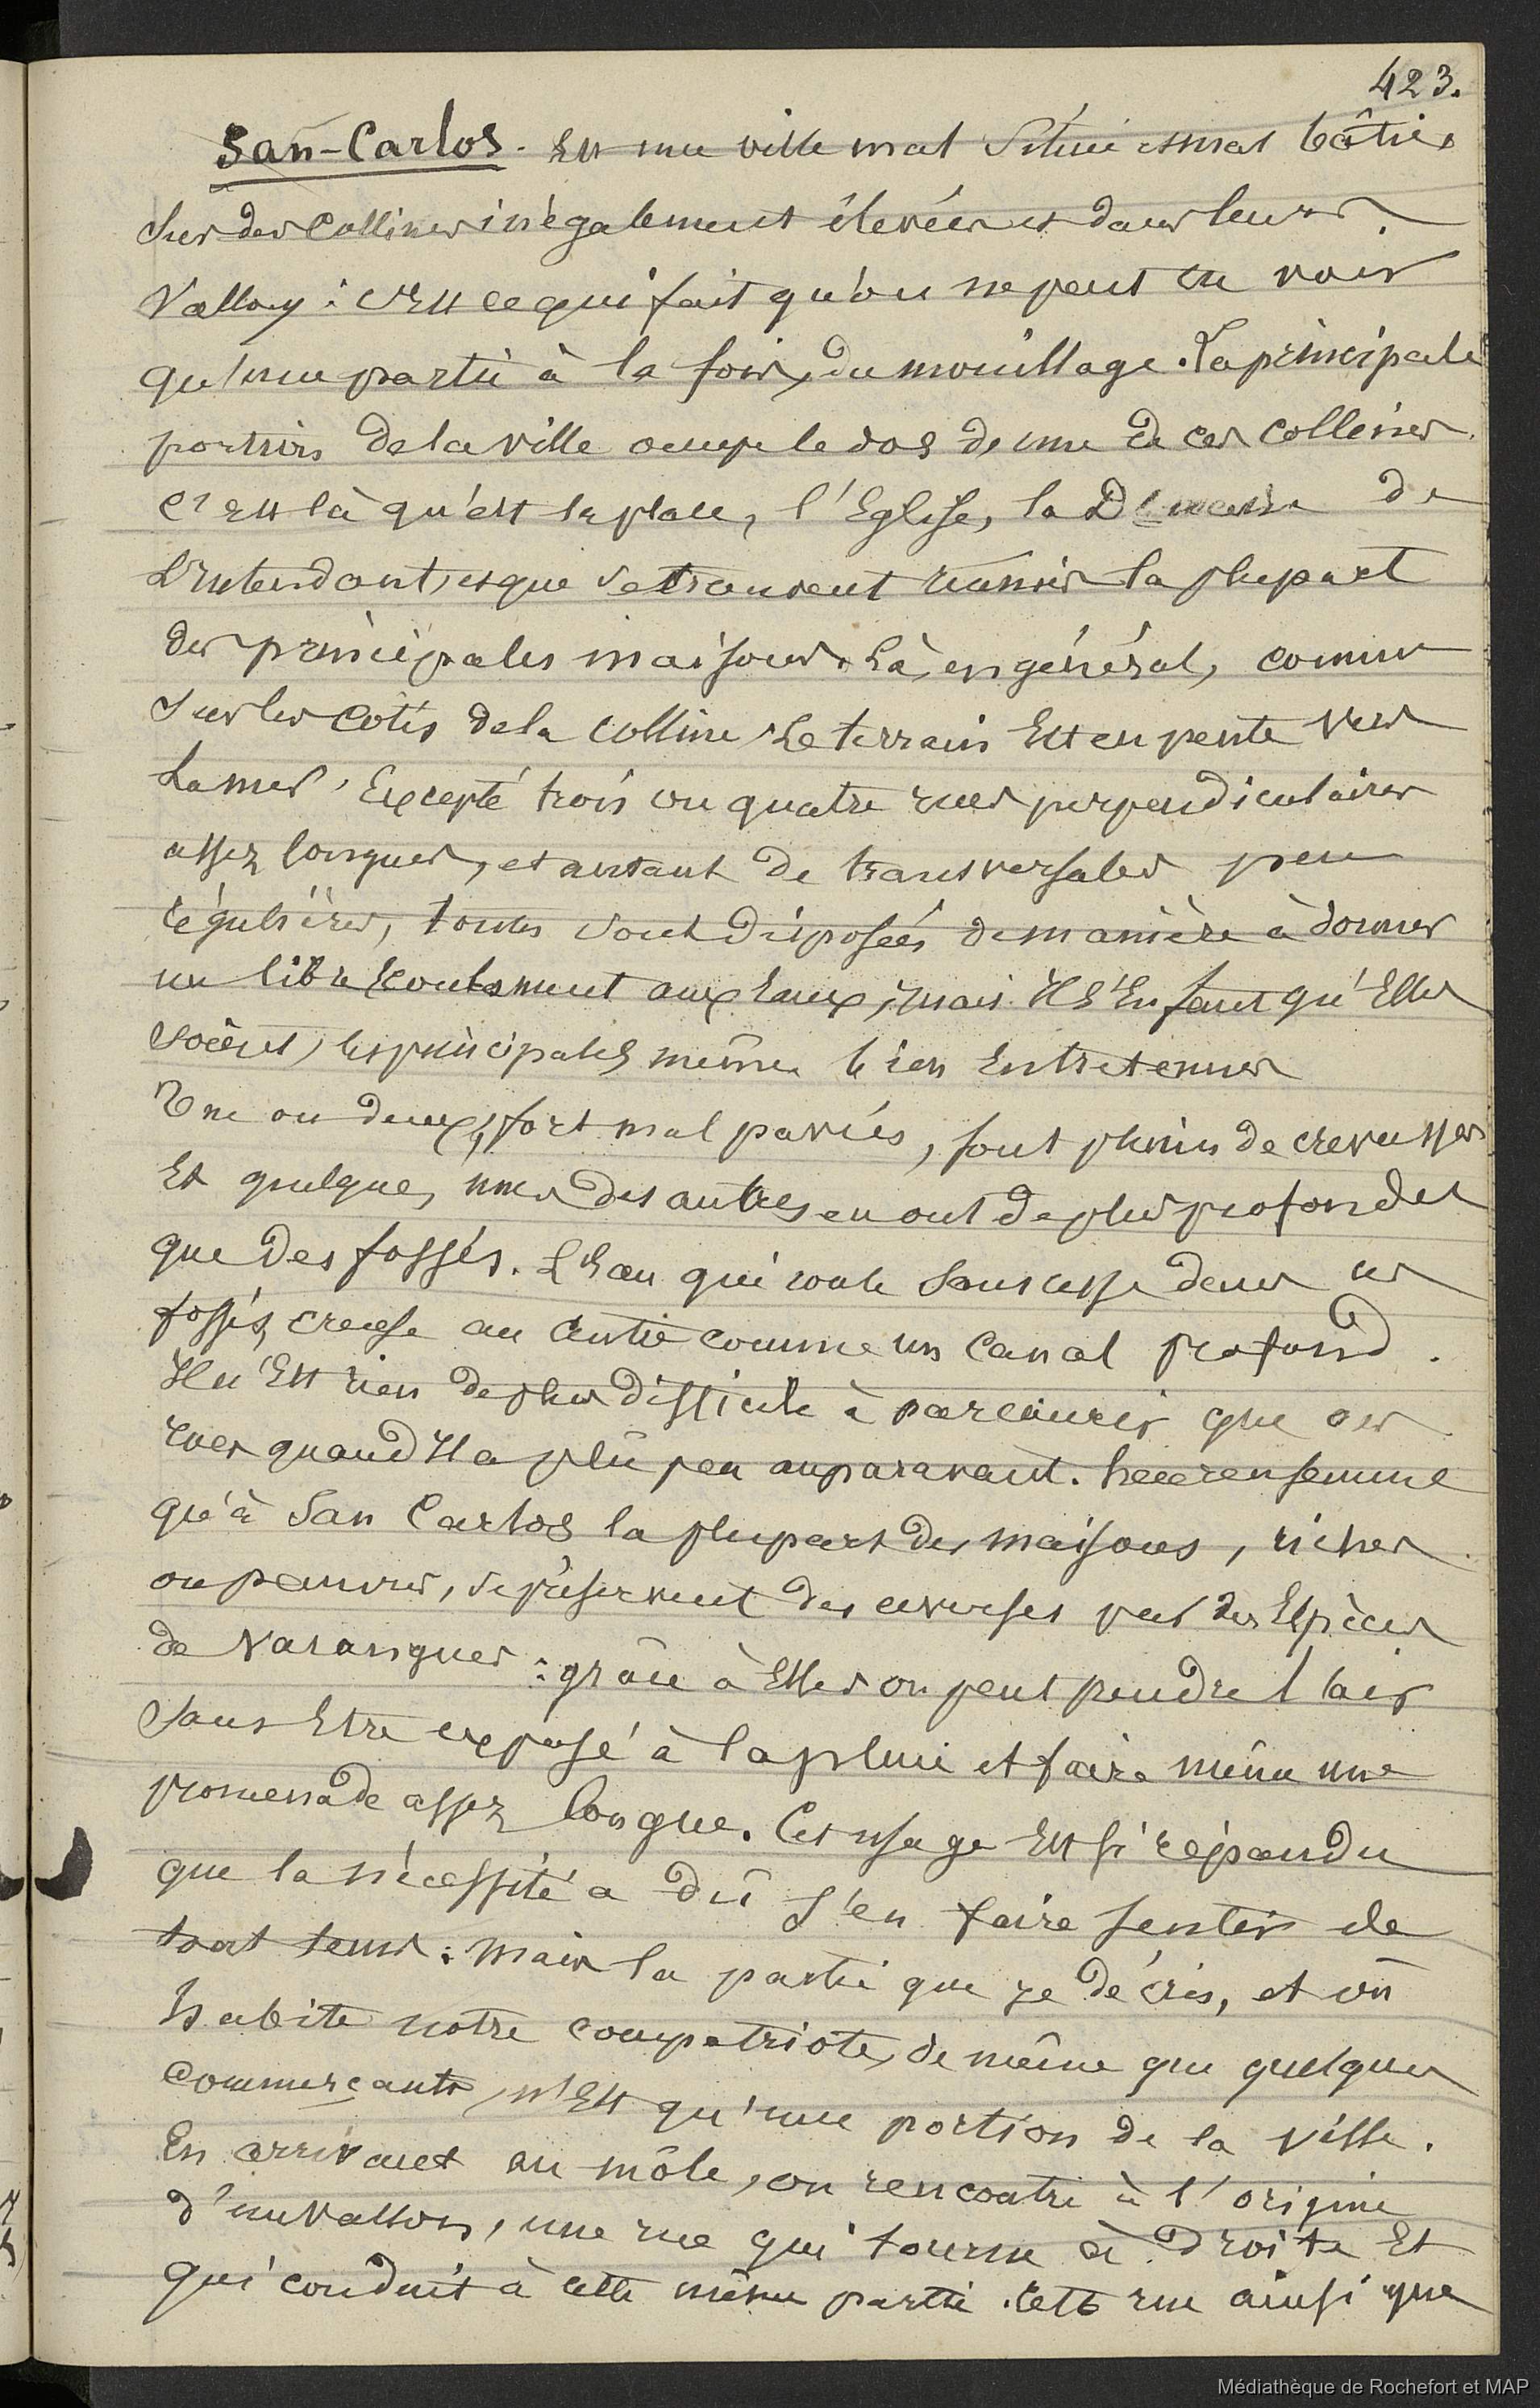 423.
San-Carlos. Est une ville mal Située et mal bâtie,
Sur des Collines inégalement élevées et dans leurs
Vallons : C'Est ce qui fait qu'on ne peut en voir
qu'une partie à la fois, du mouillage. La principale
portion de la ville occupe le dos de une de ces collines.
C'Est là qu'est la place, l'Eglise, la Demeure de
L'Intendant, et que se trouvent réunies la plupart
des principales maisons. Là, en général, comme
Sur les Cotés de la colline, Le terrain Est en pente vers
La mer. Excepté trois ou quatre rues perpendiculaires
assez longues, et autant de transversales peu
régulières, toutes sont disposées de manière à donner
un libre Ecoulement aux Eaux ; mais Il S'En faut qu'Elles
soient, les principales même bien Entretenues
Une ou deux, fort mal pavées, sont pleines de crevasses
Et quelques unes des autres en ont de plus profondes
que des fossés. L'Eau qui roule Sans cesse dans ces
fossés, creuse au Centre comme un Canal profond.
Il n'Est rien de plus difficile à parcourir que ces
rues quand Il a plû peu auparavant. heureusement
qu'à San Carlos la plupart des maisons, riches
ou pauvres, se préservent des averses par des Espèces
de Varangues : grâce à Elles on peut prendre l'air
Sans Etre exposé à la pluie et faire même une
promenade assez longue. Cet usage Est si répandu
que la nécessité a dû s'en faire sentir de
tout tems : mais la partie que je décris, et où
habite notre compatriote, de même que quelques
Commerçants, n'Est qu'une portion de la ville.
En arrivant au môle, on rencontre à l'origine
d'un Vallon, une rue qui tourne à droite Et
qui conduit à cette même partie. Cette rue ainsi que
Médiathèque de Rochefort et MAP